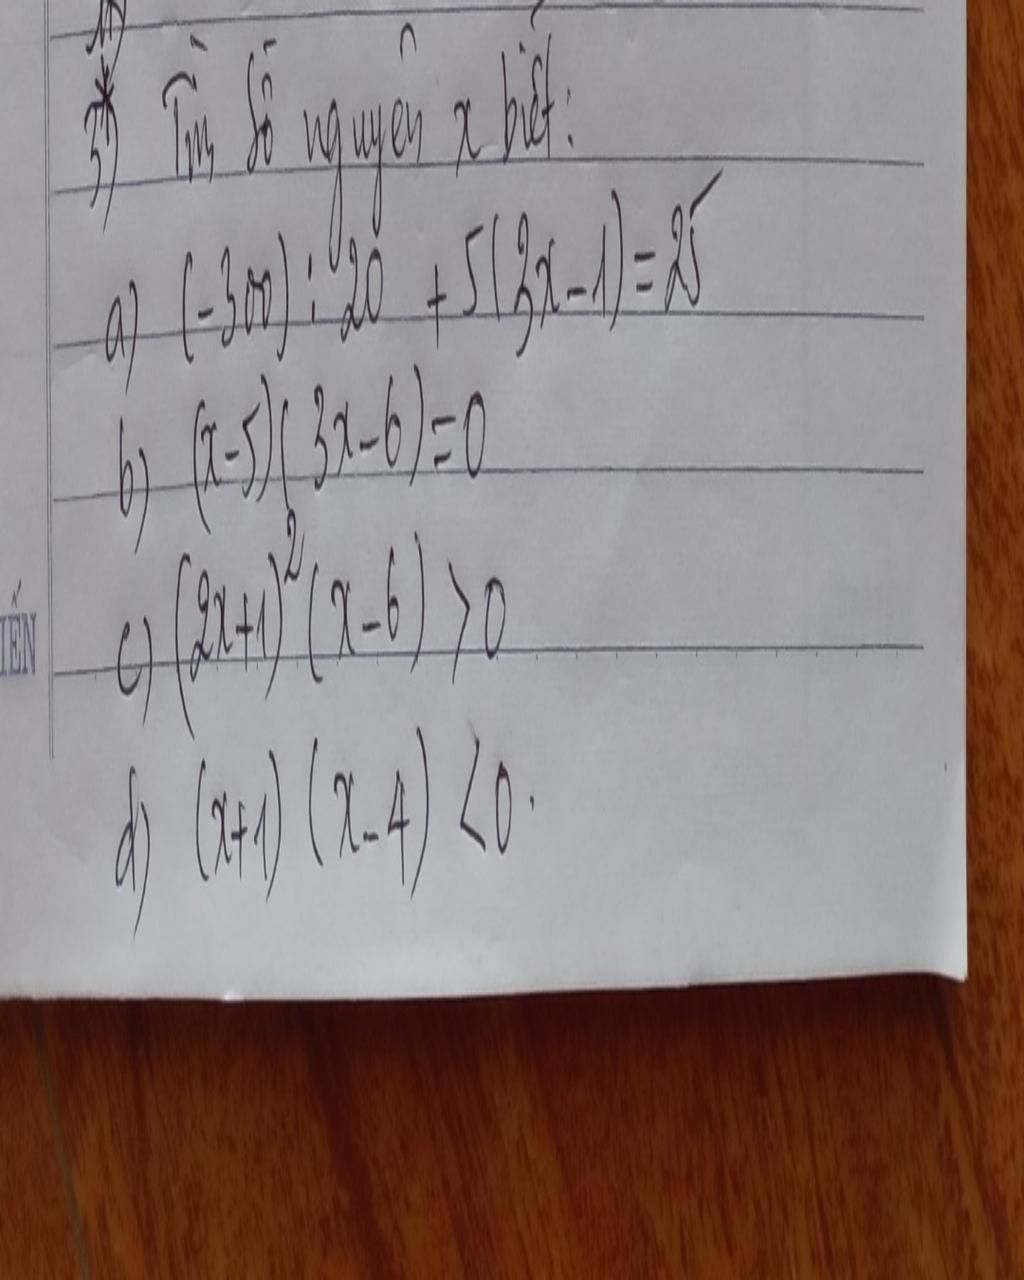 3*) Tìm số nguyên x biết:
a) (-300) : 20 + 5(3x-1) = 25
b) (x-5)(3x-6)=0
c) (2x+1)² (x-6) >0
IẾN
d) (x+1) (x-4) <0.